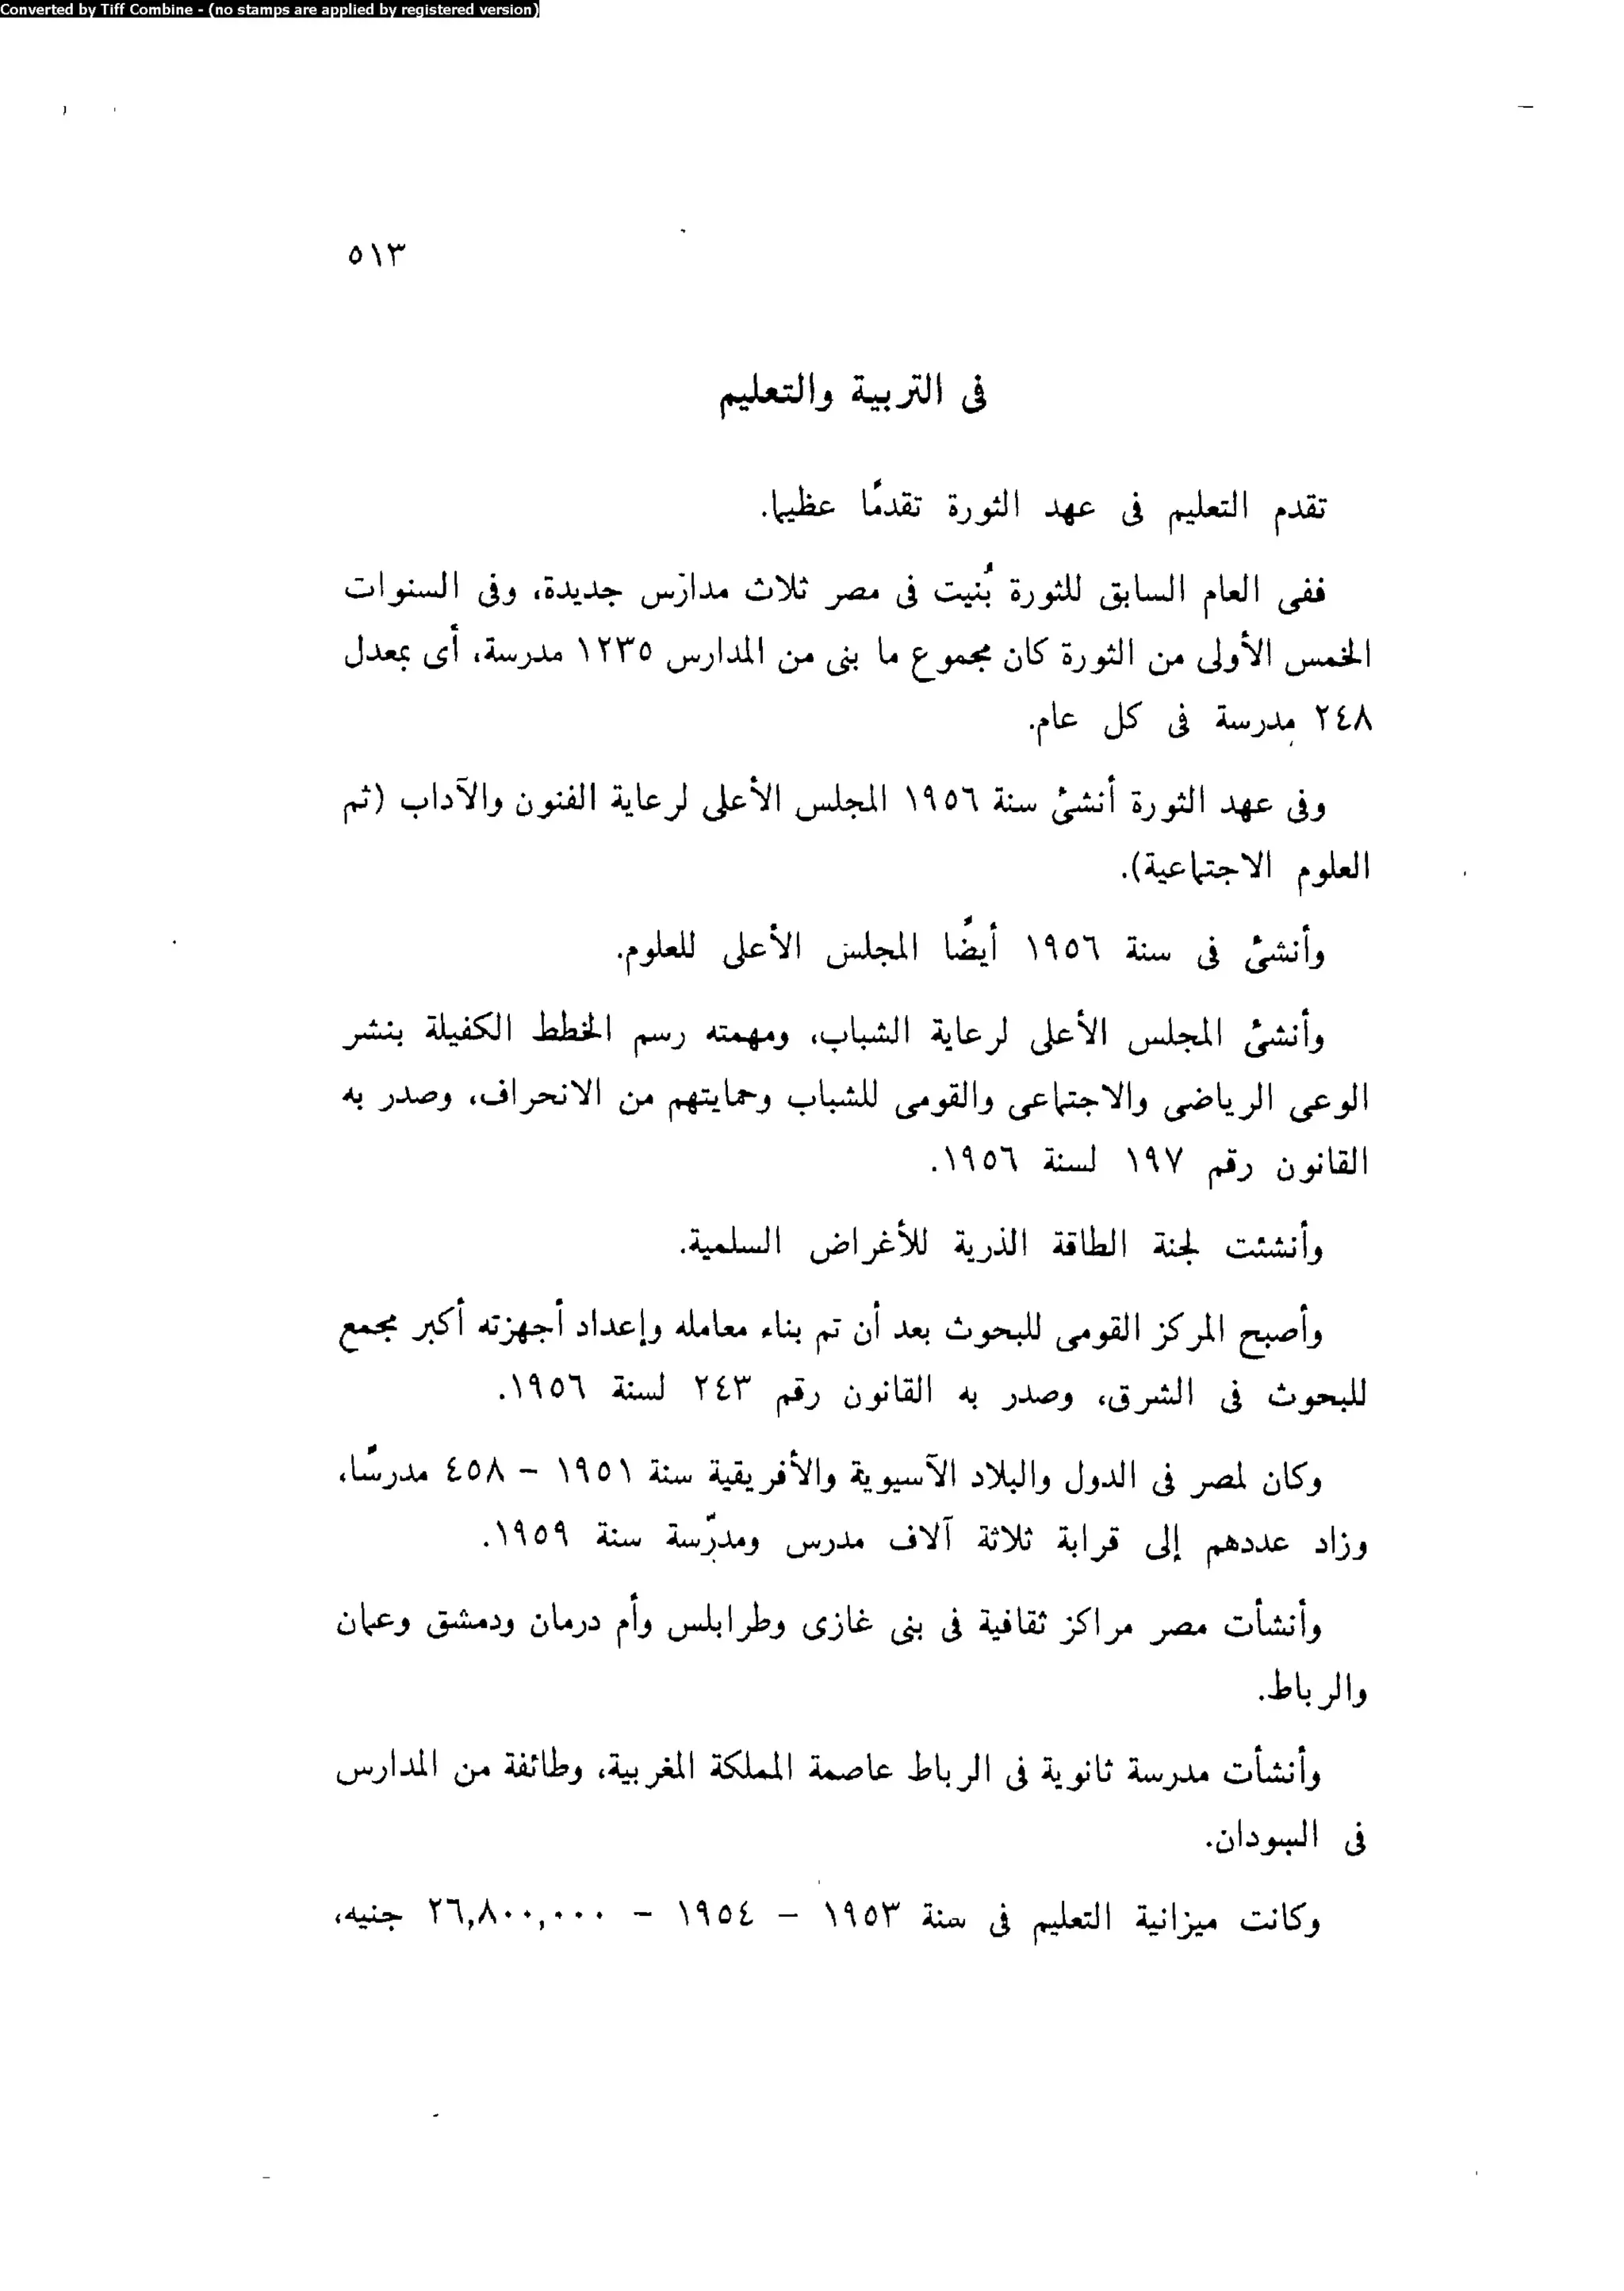 Converted by Tiff Combine - (no stamps are applied by registered version)
٥١٣
فى التربية والتعليم
تقدم التعليم فى عهد الثورة تقدمًا عظيما.
ففى العام السابق للثورة بُنيت فى مصر ثلاث مدارس جديدة، وفى السنوات
الخمس الأولى من الثورة كان مجموع ما بنى من المدارس ١٢٣٥ مدرسة، أى بمعدل
٢٤٨ مدرسة فى كل عام.
وفى عهد الثورة أنشئ سنة ١٩٥٦ المجلس الأعلى لرعاية الفنون والآداب (ثم
العلوم الاجتماعية).
وأنشئ فى سنة ١٩٥٦ أيضًا المجلس الأعلى للعلوم.
وأنشئ المجلس الأعلى لرعاية الشباب، ومهمته رسم الخطط الكفيلة بنشر
الوعى الرياضى والاجتماعى والقومى للشباب وحمايتهم من الانحراف، وصدر به
القانون رقم ١٩٧ لسنة ١٩٥٦.
وأنشئت لجنة الطاقة الذرية للأغراض السلمية.
وأصبح المركز القومى للبحوث بعد أن تم بناء معامله وإعداد أجهزته أكبر مجمع
للبحوث فى الشرق، وصدر به القانون رقم ٢٤٣ لسنة ١٩٥٦.
وكان لمصر فى الدول والبلاد الآسيوية والأفريقية سنة ١٩٥١ – ٤٥٨ مدرسًا،
وزاد عددهم إلى قرابة ثلاثة آلاف مدرس ومدرّسة سنة ١٩٥٩.
وأنشأت مصر مراكز ثقافية فى بنى غازى وطرابلس وأم درمان ودمشق وعمان
والرباط.
وأنشأت مدرسة ثانوية فى الرباط عاصمة المملكة المغربية، وطائفة من المدارس
فى السودان.
وكانت ميزانية التعليم فى سنة ١٩٥٣ – ١٩٥٤ – ٢٦,٨٠٠,٠٠٠ جنيه،